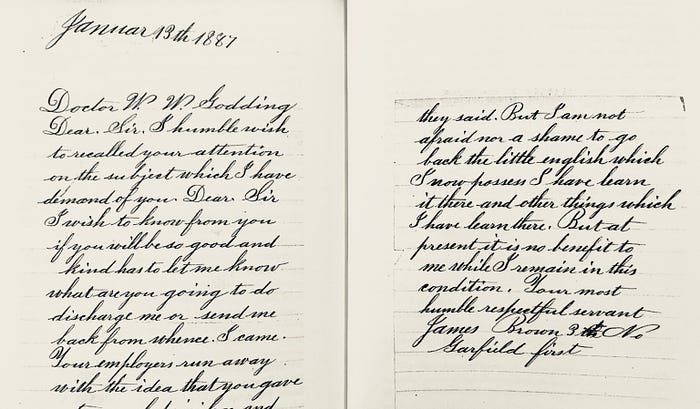 Januar 13th 1887
Doctor W. W. Godding
Dear. Sir. I humble wish
to recalled your attention
on the subject which I have
demand of you. Dear. Sir
I wish to know from you
if you will be so good and
kind has to let me know
what are you going to do
discharge me or send me
back from whence. I came.
Your employers run away
with the idea that you gave
and
they said. But I am not
afraid nor a shame to go
back the little english which
I now possess I have learn
it there and other things which
I have learn there. But at
present it is no benefit to
me while I remain in this
condition. Your most
humble respectful servant
James Brown 3 No
Garfield first